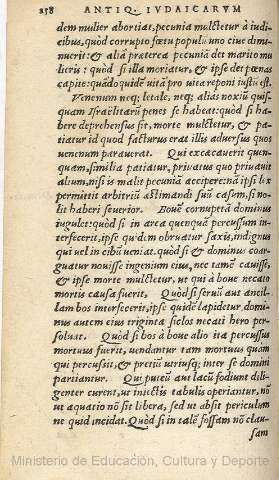 258 ANTIQ. IVDAICARVM
dem mulier abortiat, pecunia mulctetur à iudi-
cibus, quòd corrupto fœtu populũ uno ciue dimi-
nuerit: & aliã praterea pecuniã det marito mu
lieris: quòd si illa moriatur, & ipse det pœnas
capite: quãdoquidē uitã pro uita reponi iustũ est.
Venenum neq; letale, neq; alias noxiũ quis-
quam Israëlitarũ penes se habeat: quòd si ha-
bere deprehensus sit, morte mulctetur, & pa-
tiatur id quod facturus erat illis aduersus quos
uenenum parauerat. Qui excæcauerit quen-
quam, similia patiatur, priuatus quo priuauit
alium, nisi is malit pecuniã accipere: nã ipsi lex
permittit arbitriũ æstimandi suũ casum, si no-
lit haberi seuerior. Bouē cornupetã dominus
iugulet: quòd si in area quenquã percussum in-
terfecerit, ipse quidem obruatur saxis, indignus
qui uel in cibũ ueniat: quòd si & dominus coar-
guatur nouisse ingenium eius, nec tamē cauisse,
& ipse morte mulctetur, ut qui à boue necato
mortis causa fuerit. Quòd si seruũ aut ancil-
lam bos interfecerit, ipse quidē lapidetur, domi-
nus autem eius triginta siclos necati hero per-
soluat. Quòd si bos à boue alio ita percussus
mortuus fuerit, uendantur tam mortuus quàm
qui percussit, & pretiũ utriusq; inter se domini
partiantur. Qui puteũ aut lacũ fodiunt dili-
genter curent, ut iniectis tabulis operiantur, nõ
ut aquatio nõ sit libera, sed ut absit periculum
ne quid incidat. Quòd si in talē fossam nõ clau-
sam
Ministerio de Educación, Cultura y Deporte